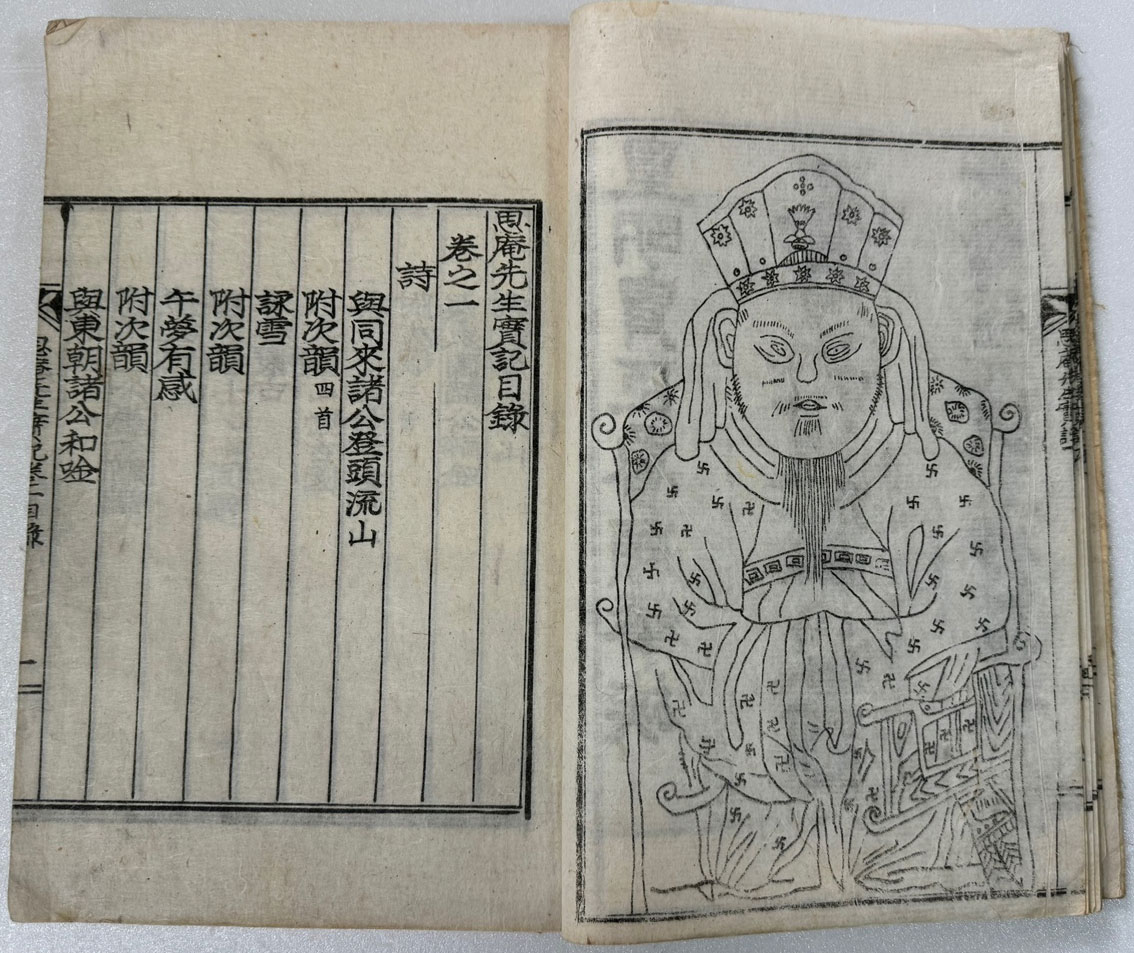 思庵先生實記目錄
卷之一
詩
與同來諸公登頭流山
附次韻 四首
詠雪
附次韻
午夢有感
附次韻
與東朝諸公和唫